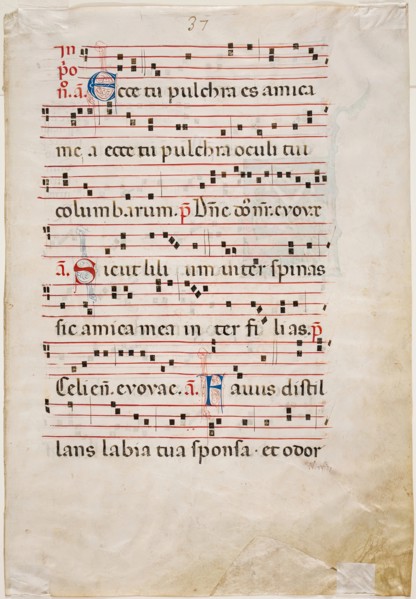 37
in
pō
n̄. ā. Ecce tu pulchra es amica
mea ecce tu pulchra oculi tui
columbarum. p̄ Dn̄e. dōm̄. evovæ
ā. Sicut lilium inter spinas
sic amica mea inter filias. p̄
Celi en̄. evovae. ā. Favus distil
lans labia tua sponsa · et odor